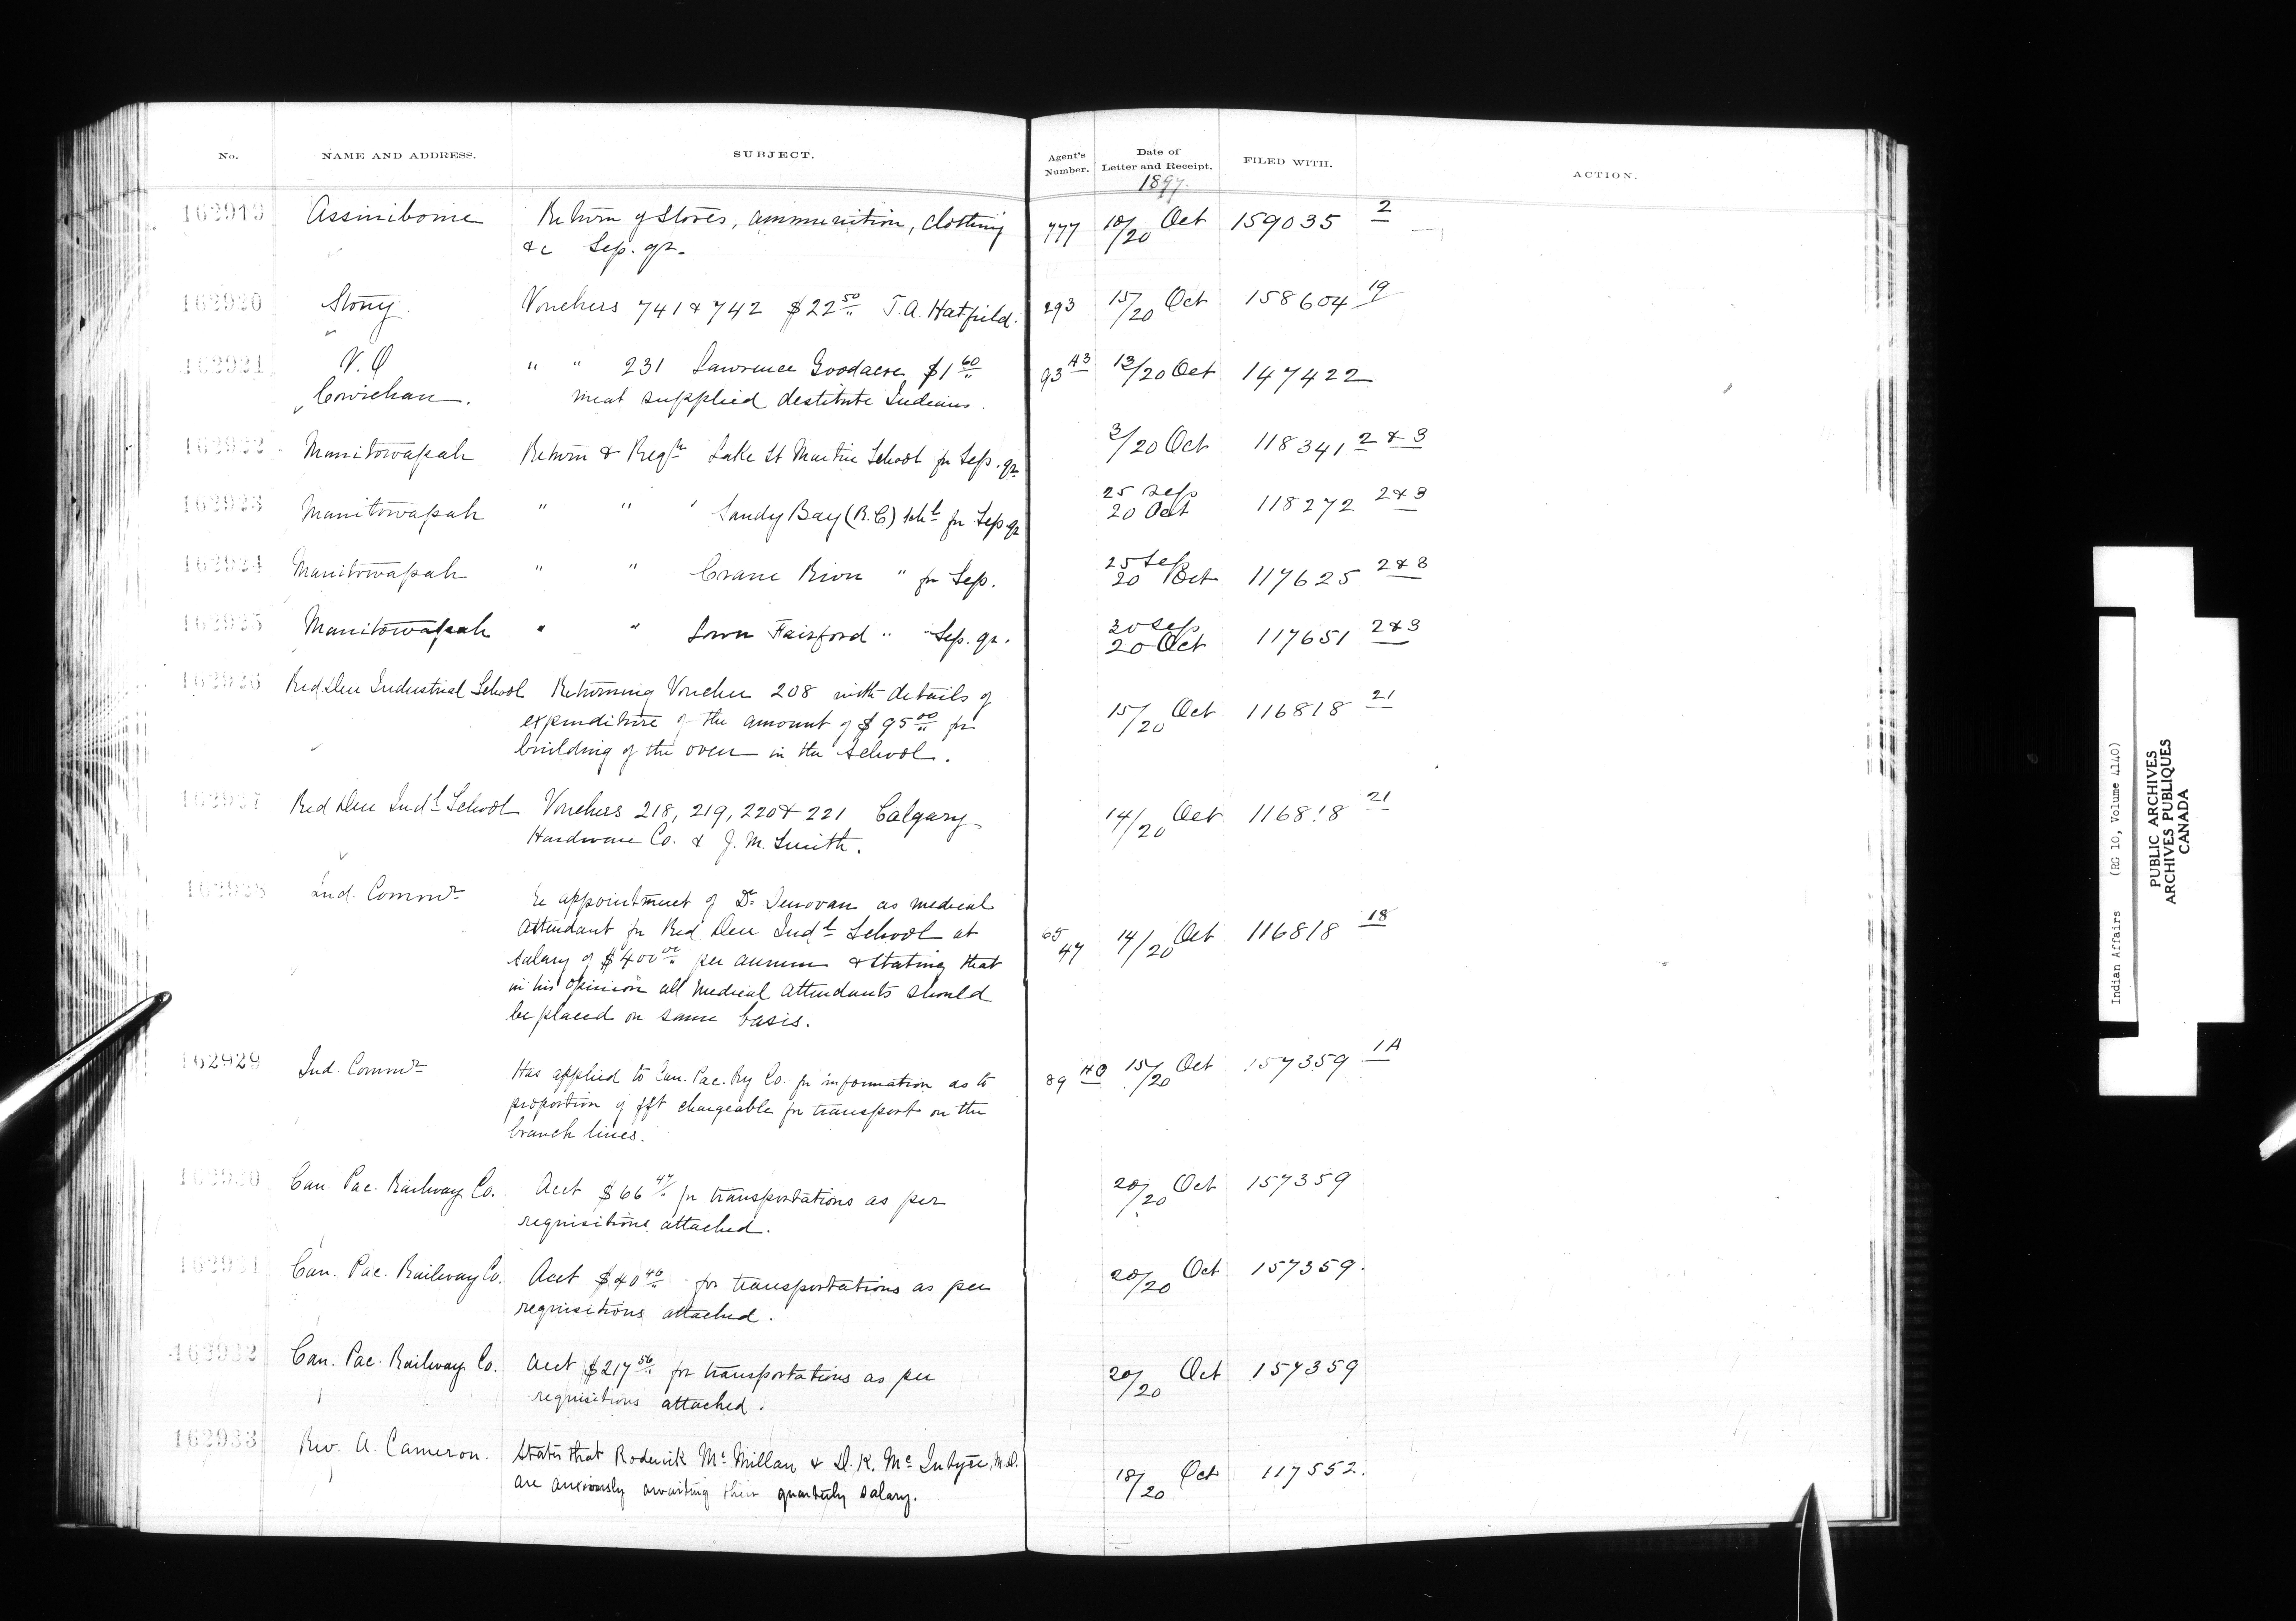 No. NAME AND ADDRESS. SUBJECT. Agent's Number. Date of Letter and Receipt. FILED WITH. ACTION.
1897.
162919 Assiniboine Return of Stores, ammunition, clothing 777 18/20 Oct 159035 2
&c Sep. qr.
162920 Stony. Vouchers 741 & 742 $22 50 T.A. Hatfield. 293 15/20 Oct 158604 19
162921 V.O " " 231 Lawrence Goodacre $1 60 93 43 13/20 Oct 147422
Cowichan. meat supplied destitute Indians.
162922 Manitowapah Return & Regr Lake St Martin School for Sep. qr 3/20 Oct 118341 2 & 3
162923 Manitowapah " " ' Sandy Bay (R.C.) schl for Sep qr 25 Sep 20 Oct 118272 2 & 3
162924 Manitowapah " " Crane River " for Sep. 25 Sep 20 Oct 117625 2 & 3
162925 Manitowapah " " Lower Fairford " " Sep. qr. 30 Sep 20 Oct 117651 2 & 3
162926 Red Deer Industrial School Returning Voucher 208 with details of
expenditure of the amount of $95 00 for 15/20 Oct 116818 21
building of the oven in the School.
162927 Red Deer Indl School Vouchers 218, 219, 220 & 221 Calgary 14/20 Oct 116818 21
Hardware Co. & J. M. Smith.
162928 Ind. Commr Re appointment of Dr Denovan as medical
Attendant for Red Deer Indl School at 65/47 14/20 Oct 116818 18
salary of $400 00 per annum & stating that
in his opinion all medical attendants should
be placed on same basis.
162929 Ind. Commr Has applied to Can. Pac. Ry Co. for information as to 89 40 15/20 Oct 157359 1A
proportion of fft chargeable for transport on the
branch lines.
162930 Can. Pac. Railway Co. Acct $66 47 for transportations as per 20/20 Oct 157359
requisitions attached.
162931 Can. Pac. Railway Co. Acct $40 46 for transportations as per 20/20 Oct 157359.
requisitions attached.
162932 Can. Pac. Railway Co. Acct $217 56 for transportations as per 20/20 Oct 157359
requisitions attached.
162933 Rev. A. Cameron. States that Roderick Mc Millan & D. K. Mc Intyre, M.D. 18/20 Oct 117552.
are anxiously awaiting their quarterly salary.
Indian Affairs (RG 10, Volume 4140)
PUBLIC ARCHIVES
ARCHIVES PUBLIQUES
CANADA